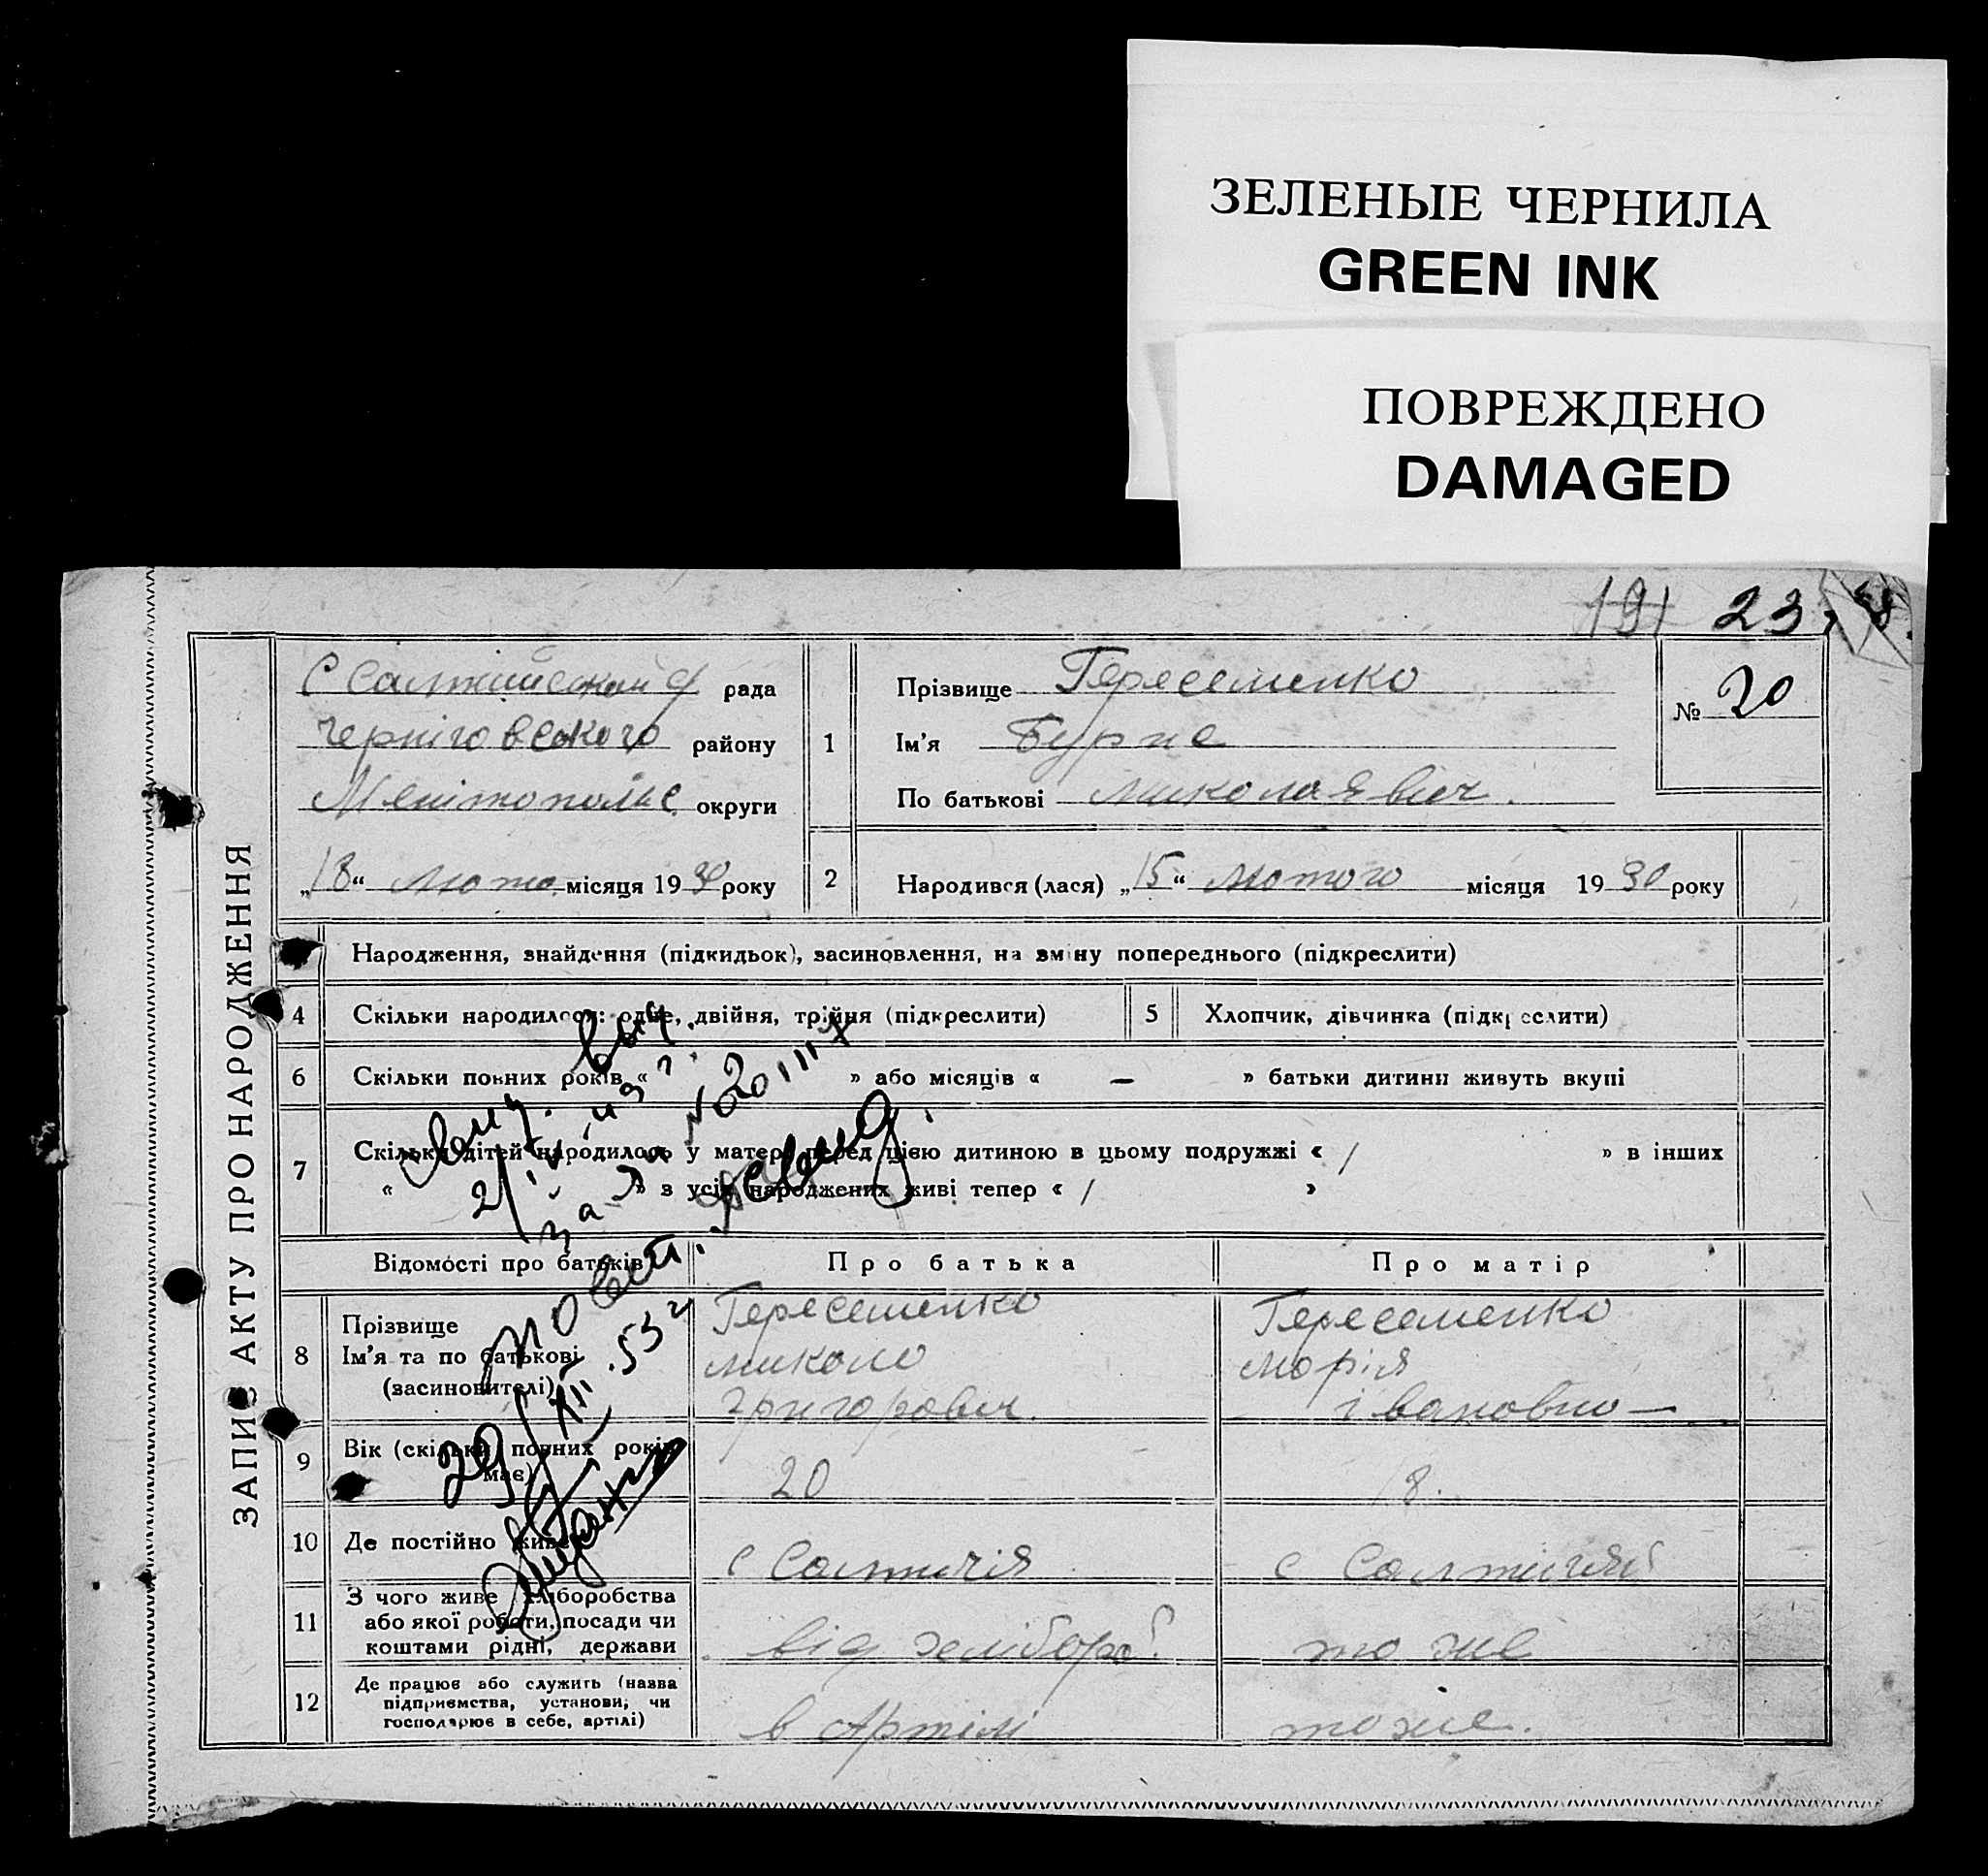 ЗЕЛЕНЫЕ ЧЕРНИЛА
GREEN INK
ПОВРЕЖДЕНО
DAMAGED
191 23
ЗАПИС АКТУ ПРО НАРОДЖЕННЯ
рада
Черніговського району
Мелітопольс округи
„18“ люто місяця 1930 року
1
Прізвище
Ім'я
По батькові Миколаявич.
№ 20
2 Народився (лася) „15“ лютого місяця 1930 року
Народження, знайдення (підкидьок), засиновлення, на зміну попереднього (підкреслити)
4 Скільки народилося: одне, двійня, трійня (підкреслити) 5 Хлопчик, дівчинка (підкреслити)
6 Скільки повних років « » або місяців « — » батьки дитини живуть вкупі
7 Скільки дітей народилось у матері перед цією дитиною в цьому подружжі « / » в інших
« » з усіх народжених живі тепер « / »
Відомості про батьків Про батька Про матір
8 Прізвище
Ім'я та по батькові
(засиновителі)
Миколо
Григорович.
Морія
івановно —
9 Вік (скільки повних років має) 20 18.
10 Де постійно живе с Солтичія с
11 З чого живе хліборобства
або якої роботи, посади чи
коштами рідні, держави
від хлібороб. то же
12 Де працює або служить (назва
підприємства, установи, чи
господарює в себе, артілі)
в Артілі то же.
29/XII.53 г